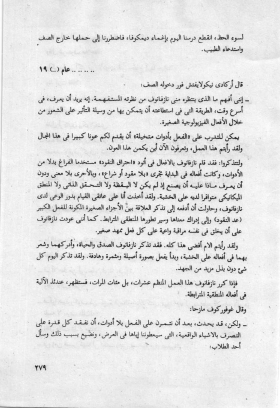 لسوء الحظ، انقطع درسنا اليوم بإغماء ديمكوفا، فاضطررنا إلى حملها خارج الصف
واستدعاء الطبيب.
........ عام (...) ١٩
قال أركادى نيكولايفتش فور دخوله الصف:
ـ إننى أفهم ما الذى ينتظره منى نازفانوف من نظرته المستفهمة. إنه يريد أن يعرف، فى
أسرع وقت، الطريقة التى فى استطاعته أن يتمكن بها من وسيلة التأثير على الشعور من
خلال الأفعال الفيزيولوجية الصغيرة.
يمكن للتدرب على «الفعل بأدوات متخيلة» أن يقدم لكم عونا كبيرا فى هذا المجال
ولقد رأيتم هذا العمل، وتعرفون الآن أين يكمن هذا العون.
ولتتذكروا: فقد قام نازفانوف بالأفعال فى أتود «احتراق النقود» مستخدما الفراغ بدلا من
الأدوات، وكانت أفعاله فى البداية تجرى «بلا مقود أو شراع»، وبالأحرى بلا معنى ودون
أن يعرف ماذا عليه أن يصنع إذ لم يكن لا اليقظة ولا التحقق الذاتى ولا المنطق
الميكانيكى متوافرا لديه على الخشبة. ولقد أخذت أنا على عاتقى القيام بدور الوعى لدى
نازفانوف، وحاولت أن أدفعه إلى تذكر العلاقة بين الأجزاء الصغيرة المكونة للفعل الكبير
(عد النقود) وإلى إدراك معناها وسير تطورها المنطقى المترابط. كما أننى عودت نازفانوف
على أن يخلق فى نفسه مراقبة واعية على كل فعل ممهد صغير.
ولقد رأيتم إلام أفضى هذا كله. فقد تذكر نازفانوف الصدق والحياة، وأدركهما وشعر
بهما فى أفعاله على الخشبة، وبدأ يفعل بصورة أصيلة ومثمرة وهادفة. ولقد تذكر اليوم كل
شىء دون بذل مزيد من الجهد.
فإذا كرر نازفانوف هذا العمل المنتظم عشرات، بل مئات المرات، فستظهر، عندئذ الآلية
فى أفعاله المنطقية المترابطة.
وقال غوفوركوف مازحا:
ـ ولكن، قد يحدث، بعد أن نتمرن على الفعل بلا أدوات، أن نفقد كل قدرة على
التصرف بالأشياء الواقعية، التى سيعطوننا إياها فى العرض، ونضيع بسبب ذلك وسأل
أحد الطلاب:
٢٧٩